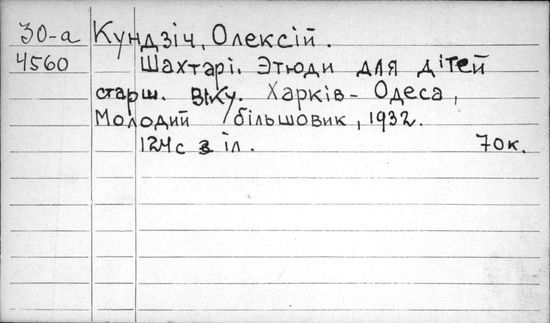 30-а Кундзіч, Олексій.
4560 Шахтарі. Этюди для дітей
старш. віку. Харків - Одеса,
Молодий більшовик, 1932.
124 с з іл. 70 к.